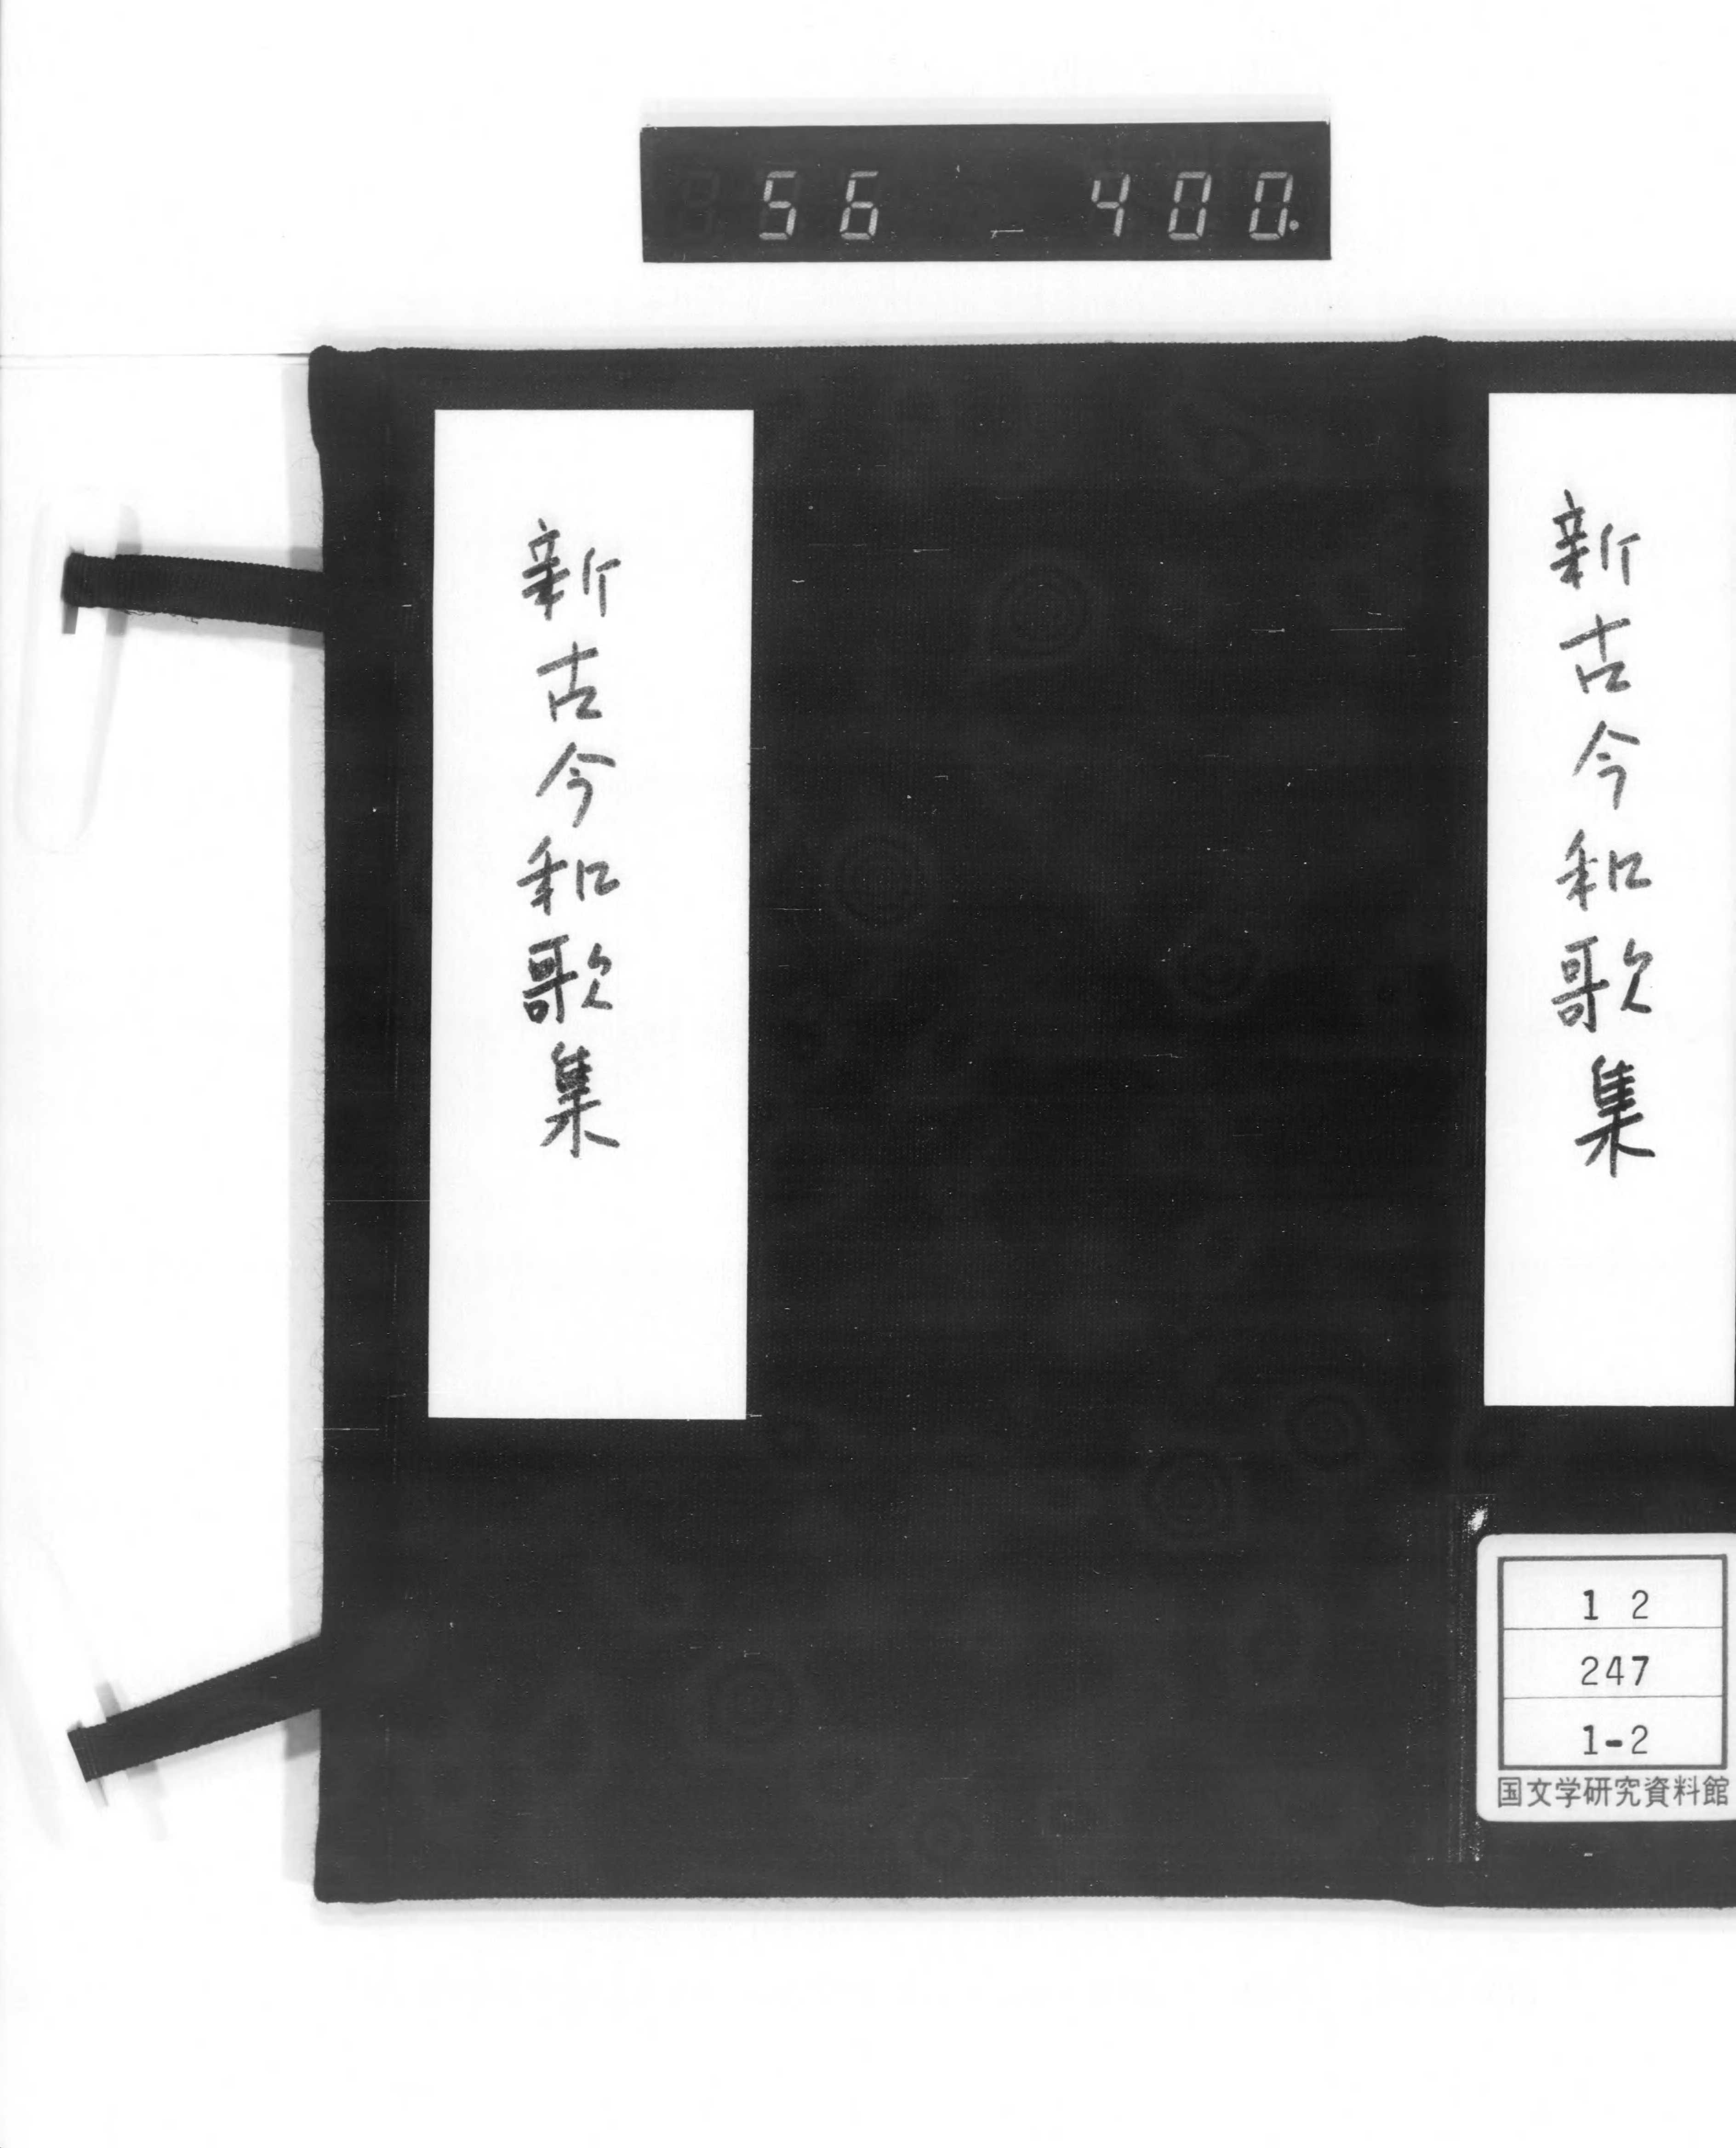 56 - 400.
新古今和歌集
新古今和歌集
12
247
1-2
国文学研究資料館